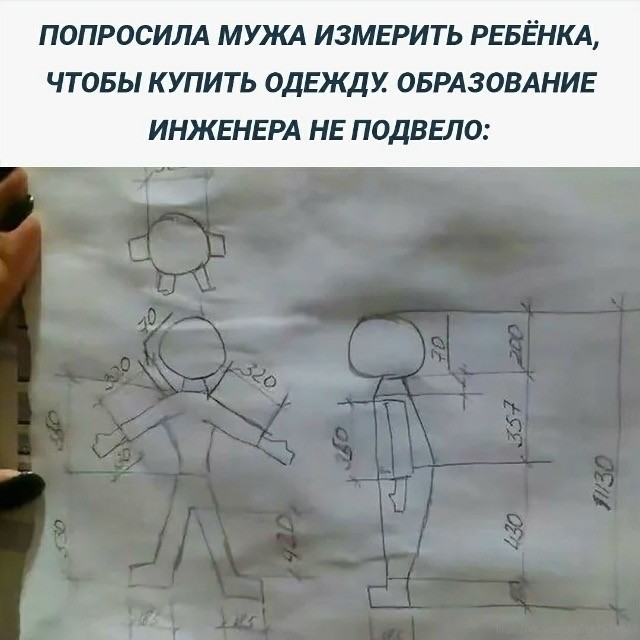 ПОПРОСИЛА МУЖА ИЗМЕРИТЬ РЕБЁНКА,
ЧТОБЫ КУПИТЬ ОДЕЖДУ. ОБРАЗОВАНИЕ
ИНЖЕНЕРА НЕ ПОДВЕЛО:
70
320
70
200
357
350
1130
430
530
420